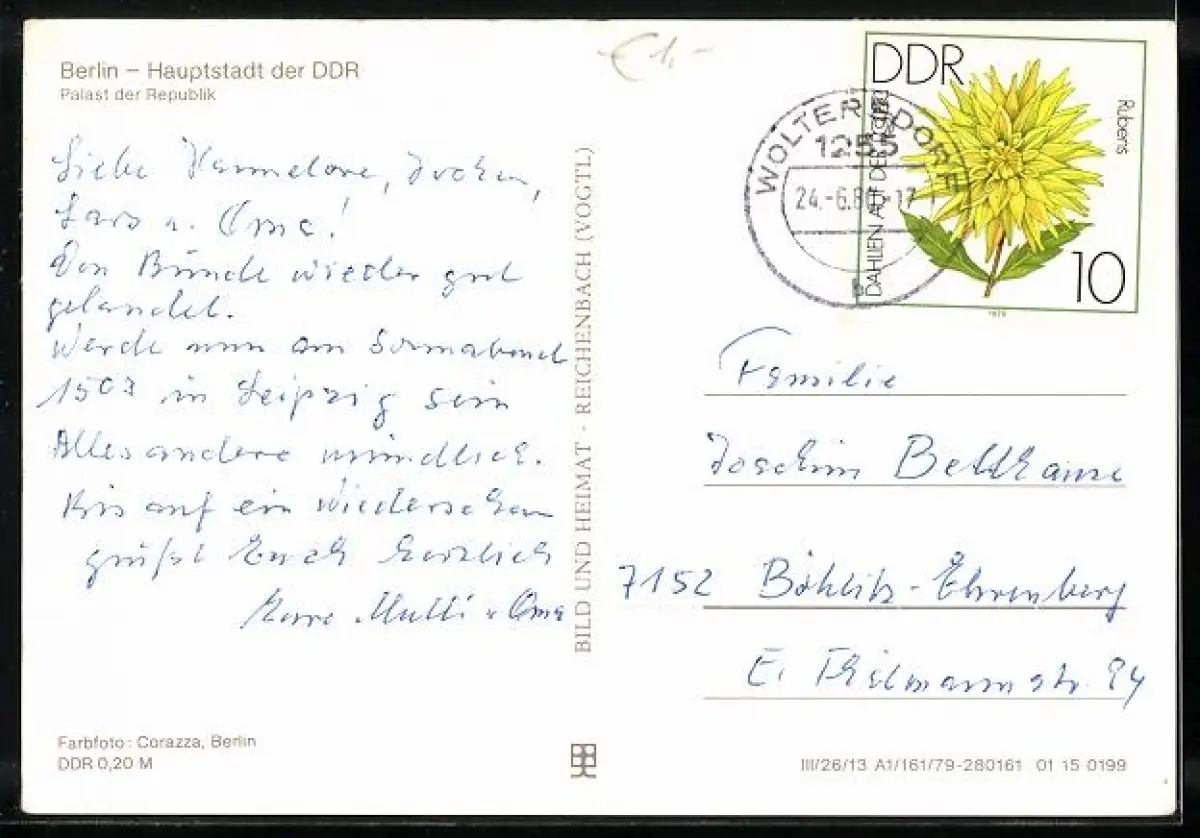 Berlin – Hauptstadt der DDR
Palast der Republik
€ 1,-
Liebe Hannelore, Jochen,
Lars u. Oma!
Von Bünde wieder gut
gelandet.
Werde nun am Sonnabend
15 03 in Leipzig sein
Alles andere mündlich.
Bis auf ein Wiedersehen
grüßt Euch herzlich
Eure Mutti u Oma
Farbfoto: Corazza, Berlin
DDR 0,20 M
BILD UND HEIMAT · REICHENBACH (VOGTL)
WOLTERSDORF
1255
24.-6.80-17
DDR
DAHLIEN AUF DER
Rubens
10
1979
Familie
Joachim
7152 Böhlitz-Ehrenberg
E. Thälmannstr. 94
III/26/13 A1/161/79-280161 01 15 0199